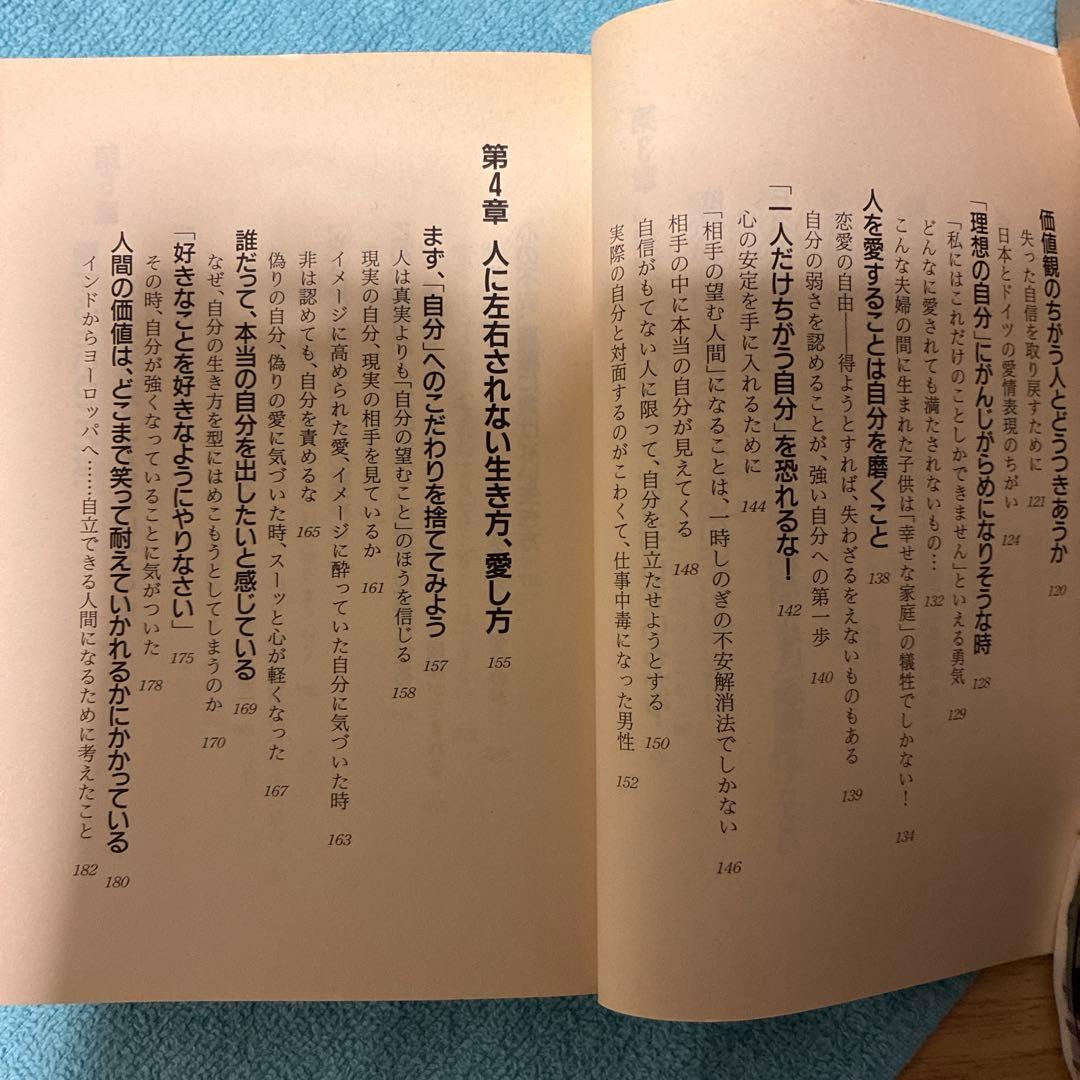 価値観のちがう人とどうつきあうか 120
失った自信を取り戻すために 121
日本とドイツの愛情表現のちがい 124
「理想の自分」にがんじがらめになりそうな時 128
「私にはこれだけのことしかできません」といえる勇気 129
どんなに愛されても満たされないもの… 132
こんな夫婦の間に生まれた子供は「幸せな家庭」の犠牲でしかない！ 134
人を愛することは自分を磨くこと 138
恋愛の自由――得ようとすれば、失わざるをえないものもある 139
自分の弱さを認めることが、強い自分への第一歩 140
「一人だけちがう自分」を恐れるな！ 142
心の安定を手に入れるために 144
「相手の望む人間」になることは、一時しのぎの不安解消法でしかない 146
相手の中に本当の自分が見えてくる 148
自信がもてない人に限って、自分を目立たせようとする 150
実際の自分と対面するのがこわくて、仕事中毒になった男性 152
第4章 人に左右されない生き方、愛し方 155
まず、「自分」へのこだわりを捨ててみよう 157
人は真実よりも「自分の望むこと」のほうを信じる 158
現実の自分、現実の相手を見ているか 161
イメージに高められた愛、イメージに酔っていた自分に気づいた時 163
非は認めても、自分を責めるな 165
偽りの自分、偽りの愛に気づいた時、スーッと心が軽くなった 167
誰だって、本当の自分を出したいと感じている 169
なぜ、自分の生き方を型にはめこもうとしてしまうのか 170
「好きなことを好きなようにやりなさい」 175
その時、自分が強くなっていることに気がついた 178
人間の価値は、どこまで笑って耐えていかれるかにかかっている 180
インドからヨーロッパへ……自立できる人間になるために考えたこと 182